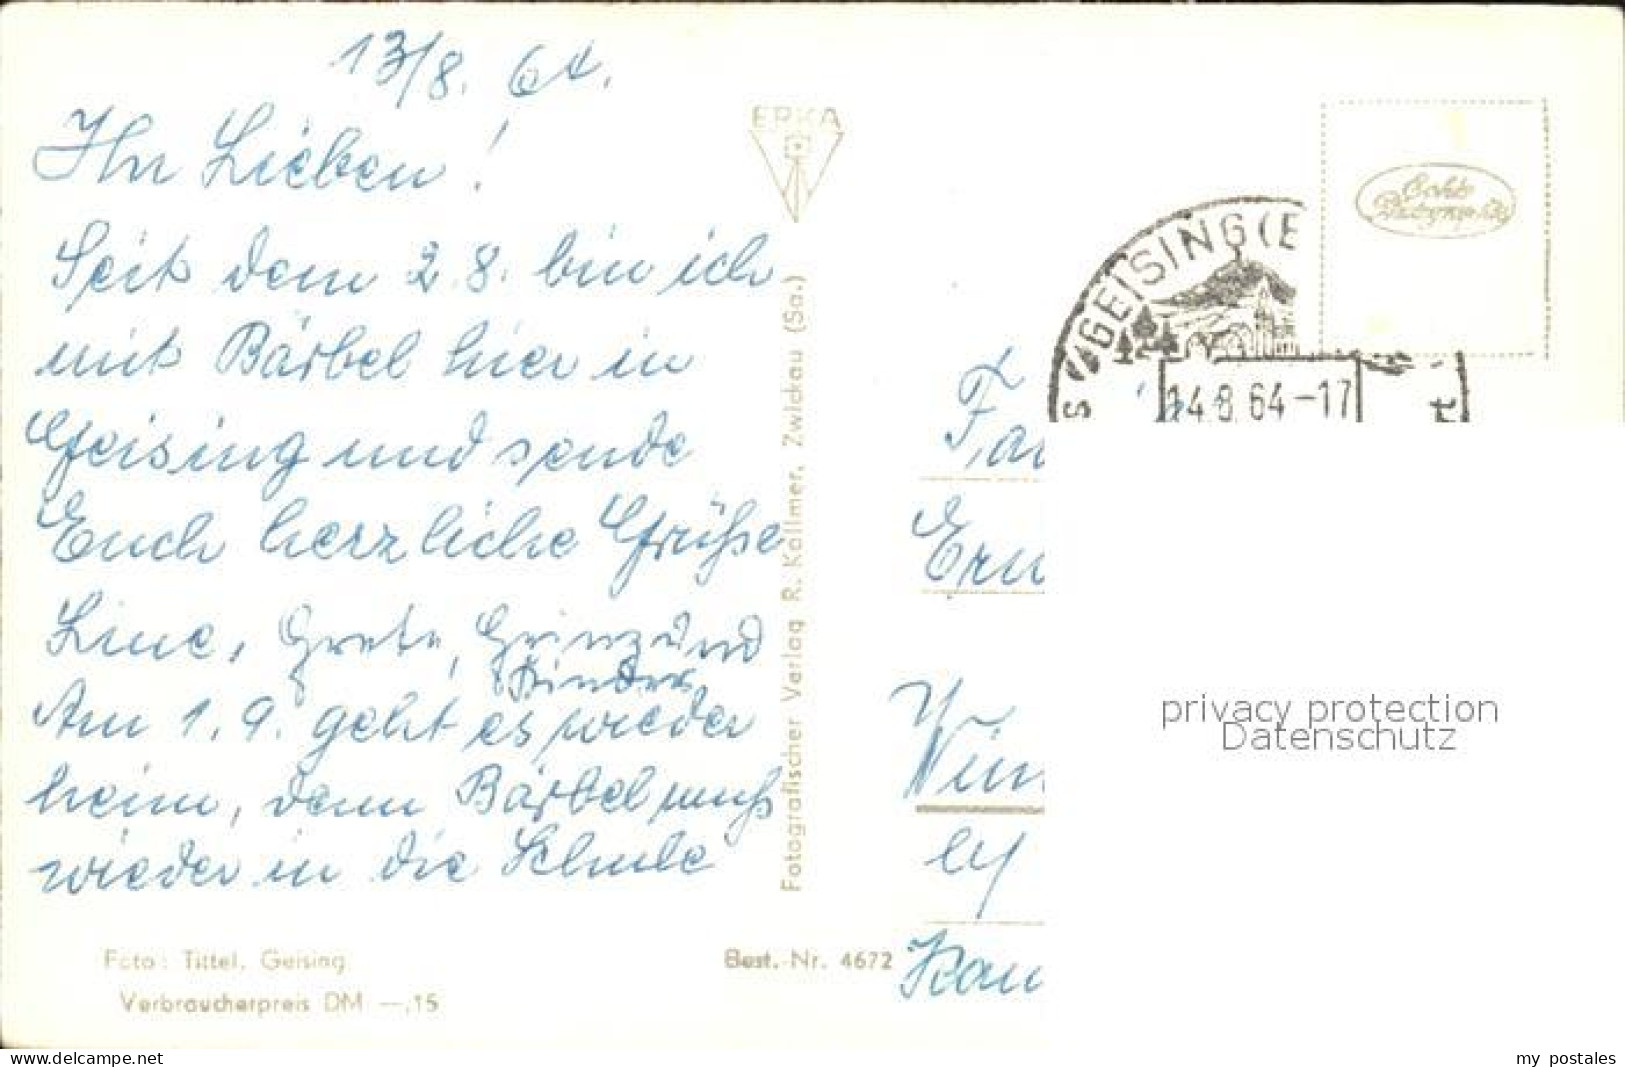 13/8. 64.
Ihr Lieben!
Seit dem 2.8. bin ich
mit Bärbel hier in
Geising und sende
Euch herzliche Grüße
Line, Grete, Heinz und
Kinder
Am 1.9. geht es wieder
heim, denn Bärbel muß
wieder in die Schule
Foto: Tittel, Geising
Verbraucherpreis DM —,15
ERKA
Fotografischer Verlag R. Kallmer, Zwickau (Sa.)
Best.-Nr. 4672
GEISING (E
14.8.64-17
Echte
privacy protection
Datenschutz
www.delcampe.net
my postales